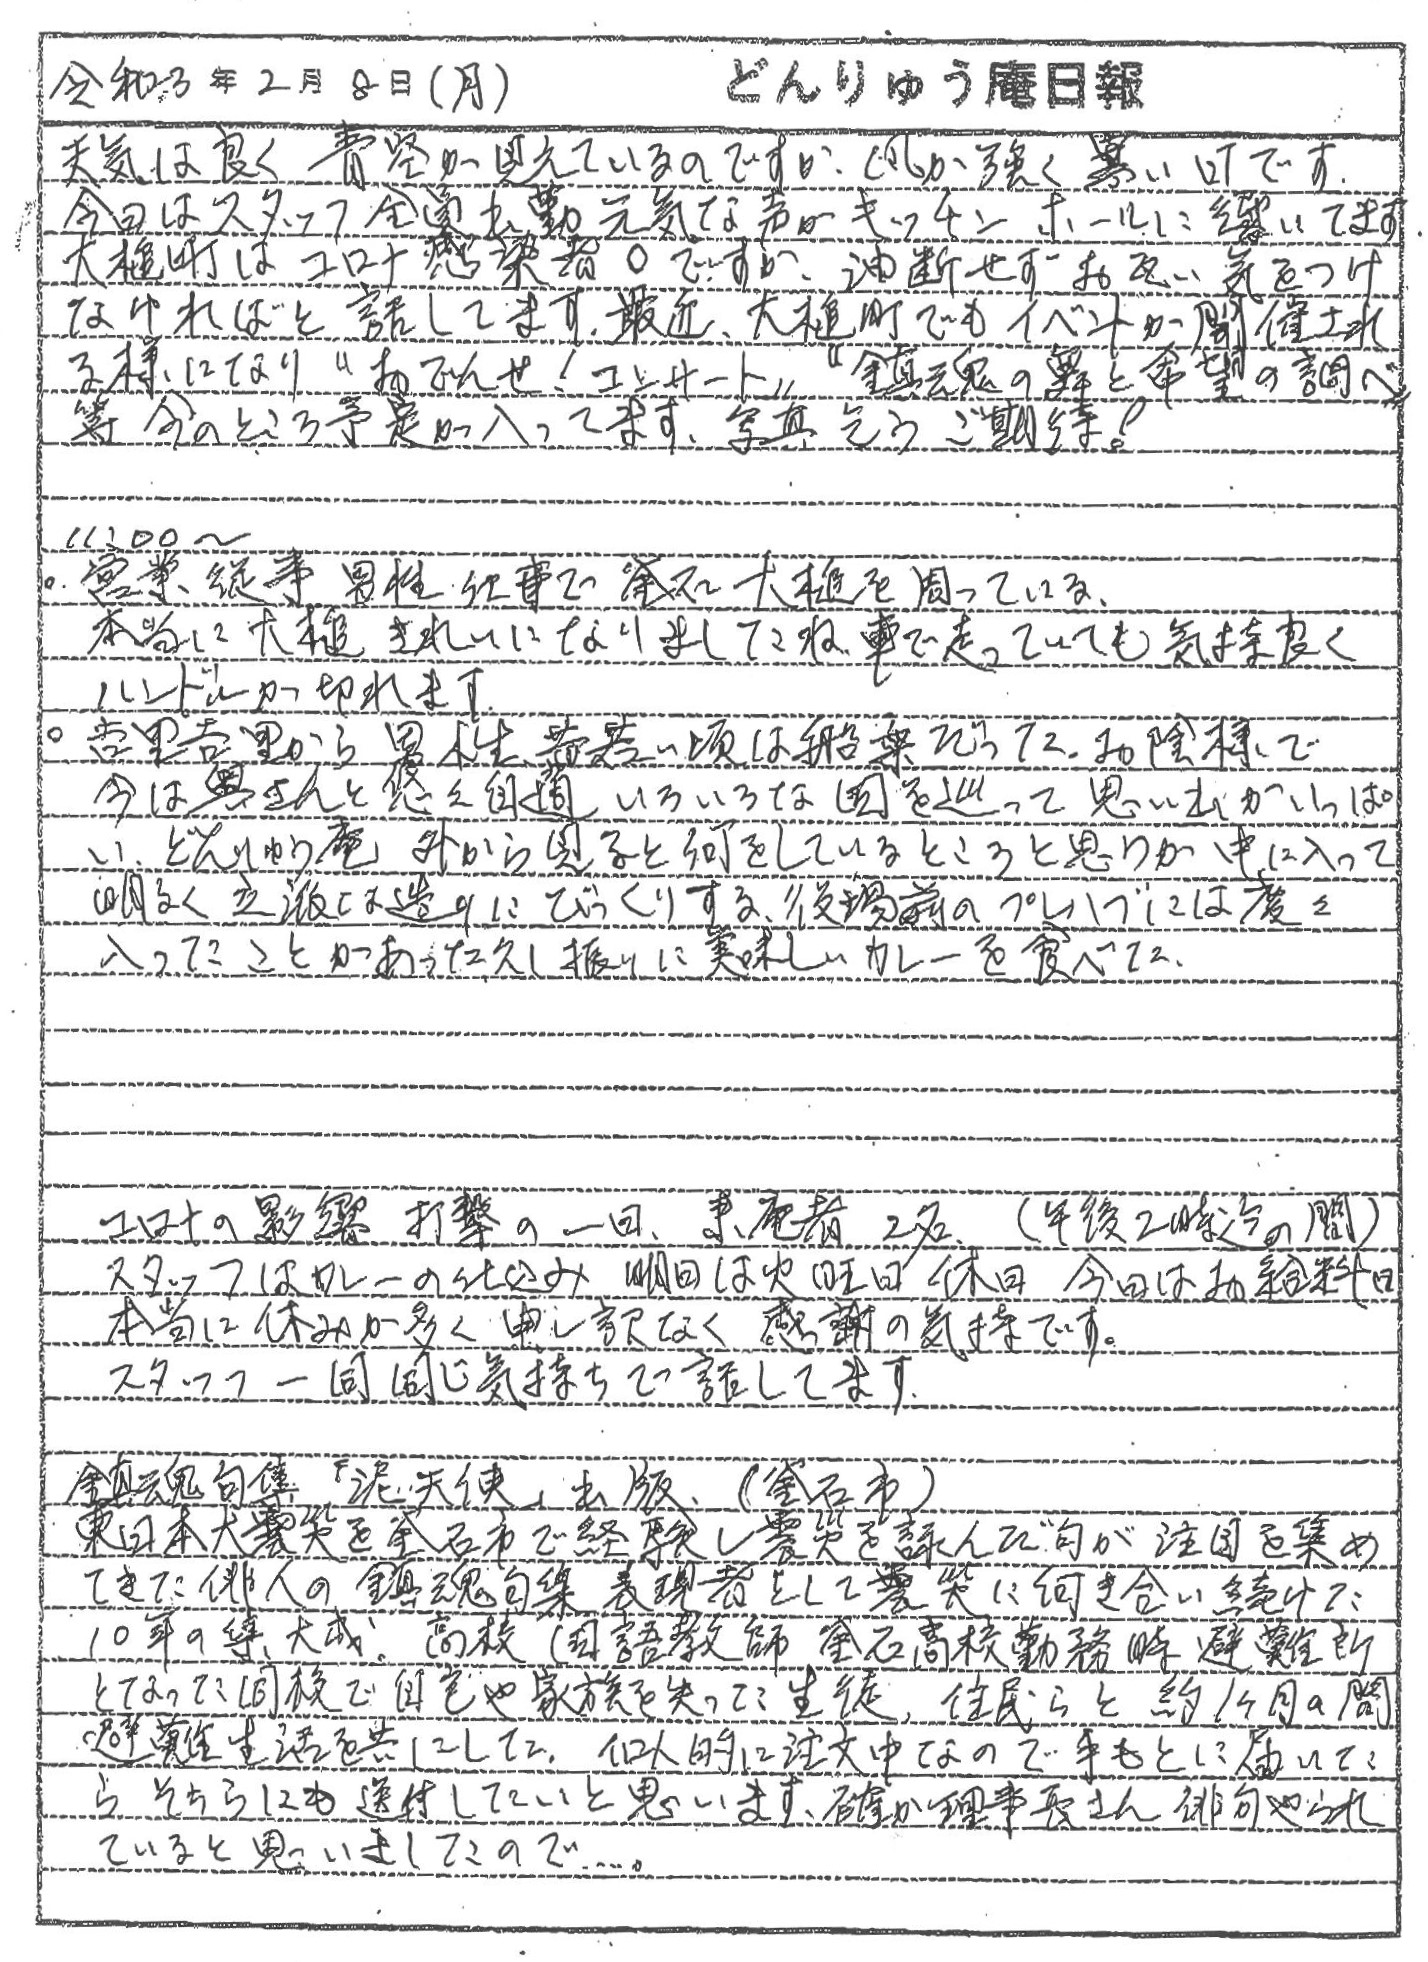 令和3年2月8日(月) どんりゅう庵日報
天気は良く 青空が見えているのですが、風が強く 寒い町です.
今日はスタッフ全員出勤 元気な声がキッチン ホールに響いてます.
大槌町はコロナ感染者0ですが、油断せずお互い気をつけ
なければと話してます. 最近、大槌町でもイベントが開催され
る様になり "おでんせ!コンサート" "鎮魂の絆と希望の調べ"
等 今のところ予定が入ってます、写真 乞うご期待!
11:00〜
○. 営業従事 男性 仕事で 釜石 大槌を周っている、
本当に大槌 きれいになりましたね 車で走っていても気持良く
ハンドルが切れます.
○ 吉里吉里から 男性、昔若い頃は船乗だった. お陰様で
今は奥さんと悠々自適 いろいろな国を巡って思い出がいっぱ
い、どんりゅう庵 外から見ると何をしているところと思うが中に入って
明るく立派な造りにびっくりする、役場前のプレハブには度々
入ったことがあった久し振りに美味しいカレーを食べた.
コロナの影響 打撃の一日、来庵者 2名、(午後2時迄の間)
スタッフはカレーの仕込み 明日は火曜日 休日 今日はお給料日
本当に休みが多く申し訳なく 感謝の気持です。
スタッフ一同同じ気持ちで話してます.
鎮魂句集『泥天使』出版、(釜石市)
東日本大震災を釜石市で経験し震災を詠んだ句が注目を集め
てきた俳人の鎮魂句集 表現者として震災に向き合い続けた
10年の集大成. 高校国語教師 釜石高校勤務時 避難所
となった同校で自宅や家族を失った生徒, 住民らと約1ケ月の間
避難生活を共にした. 個人的に注文中なので手もとに届いた
らそちらにも送付したいと思います、確か理事長さん俳句やられ
ていると思いましたので....。